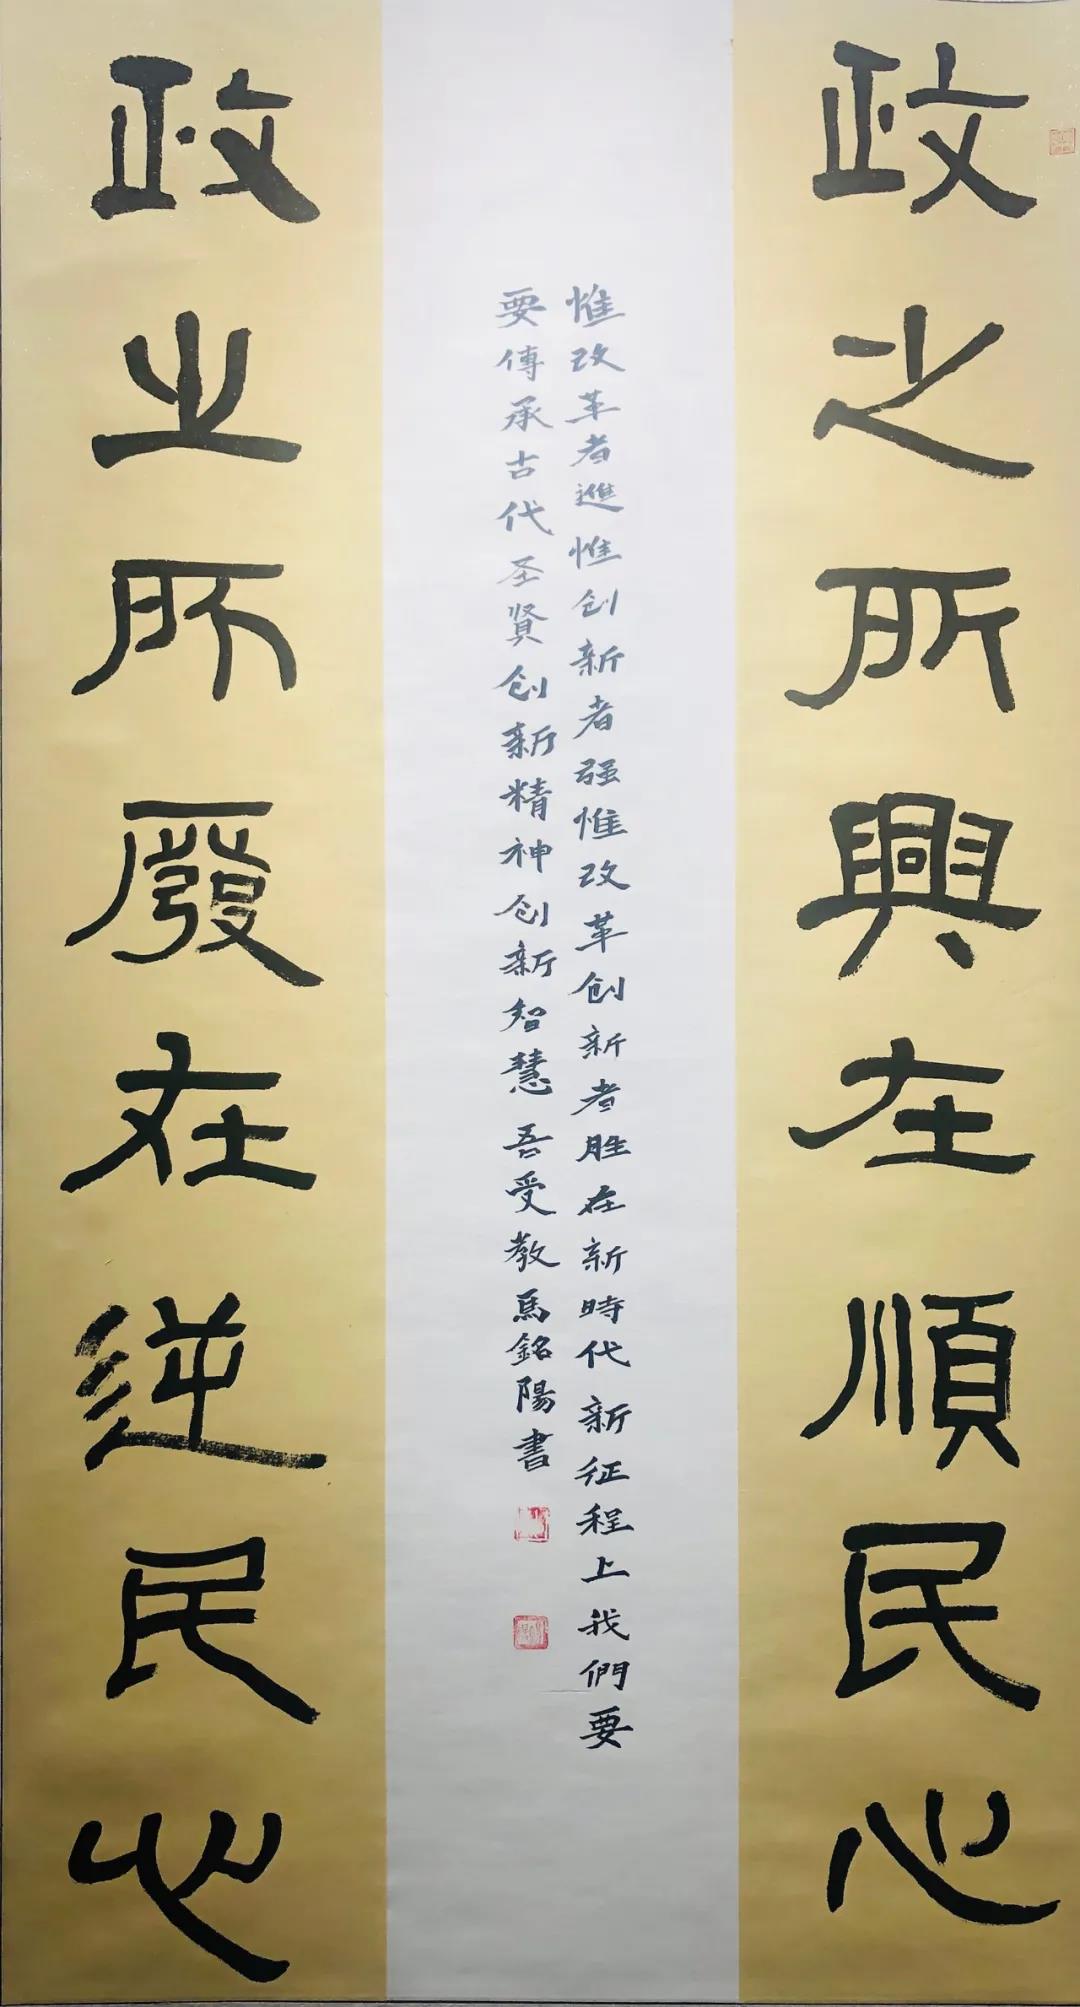 政之所興在順民心
惟改革者進惟创新者强惟改革创新者胜在新時代新征程上我們要
要傳承古代圣賢创新精神创新智慧吾受教馬銘陽書
政之所廢在逆民心